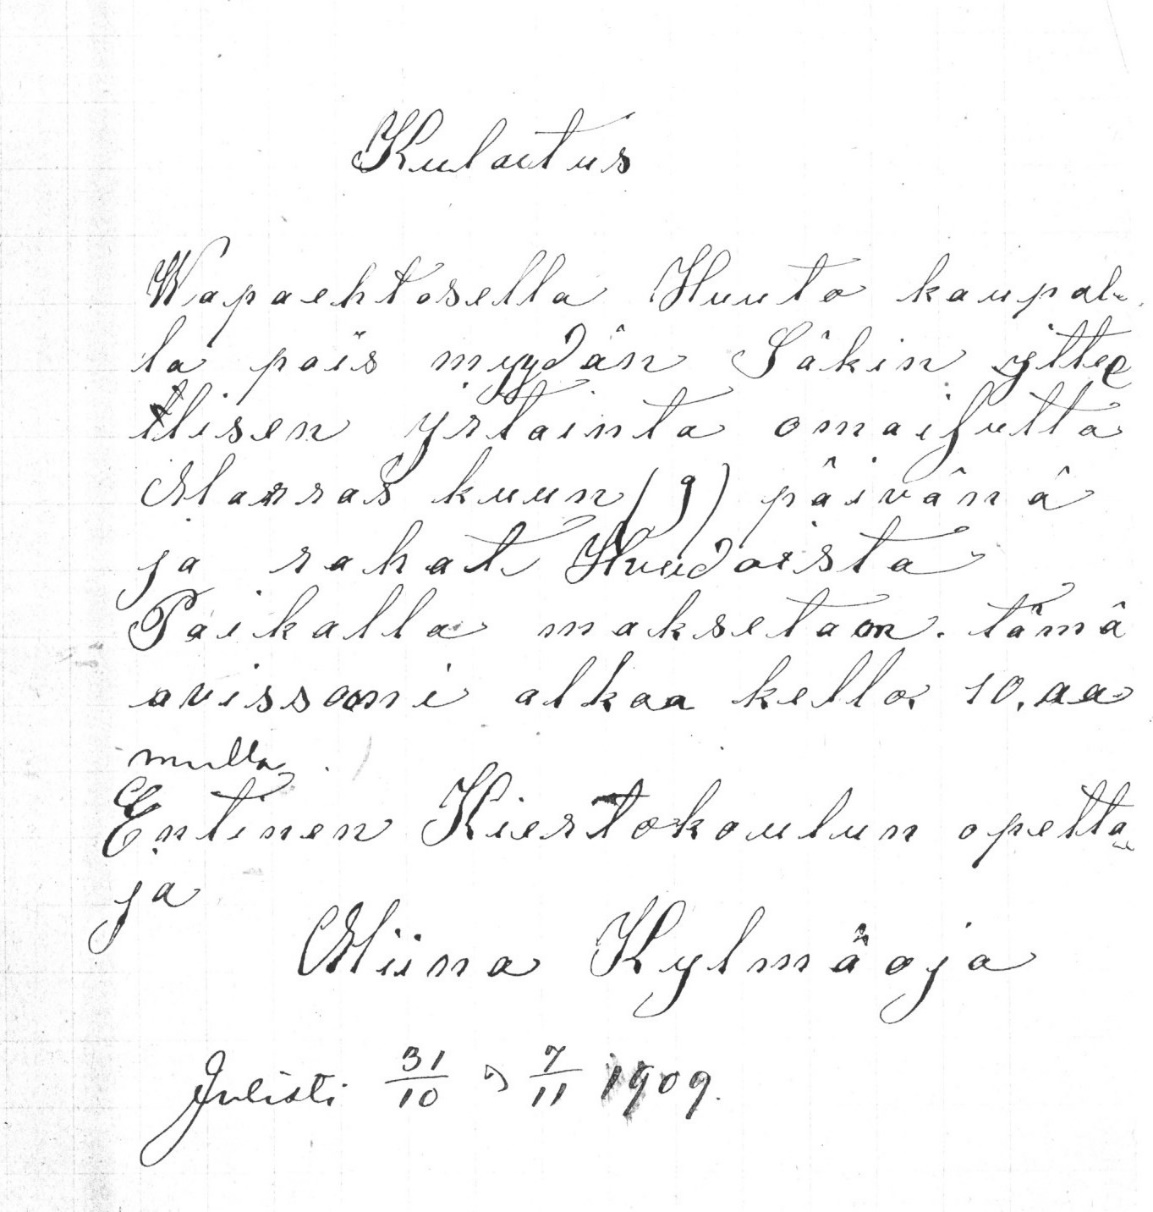 Kulutus
Wapaehtosella Huuto kaupal-
la pois myydän Säkin
irtainta
Marras kuun (9) päivänä
ja rahat Huudoista
Paikalla maksetaan. tämä
avissooni alkaa kello 10. aa
mulla
Entinen Kiertokoulun opetta
ja
Miina Kylmäoja
Julisti 31/10 7/11 1909.